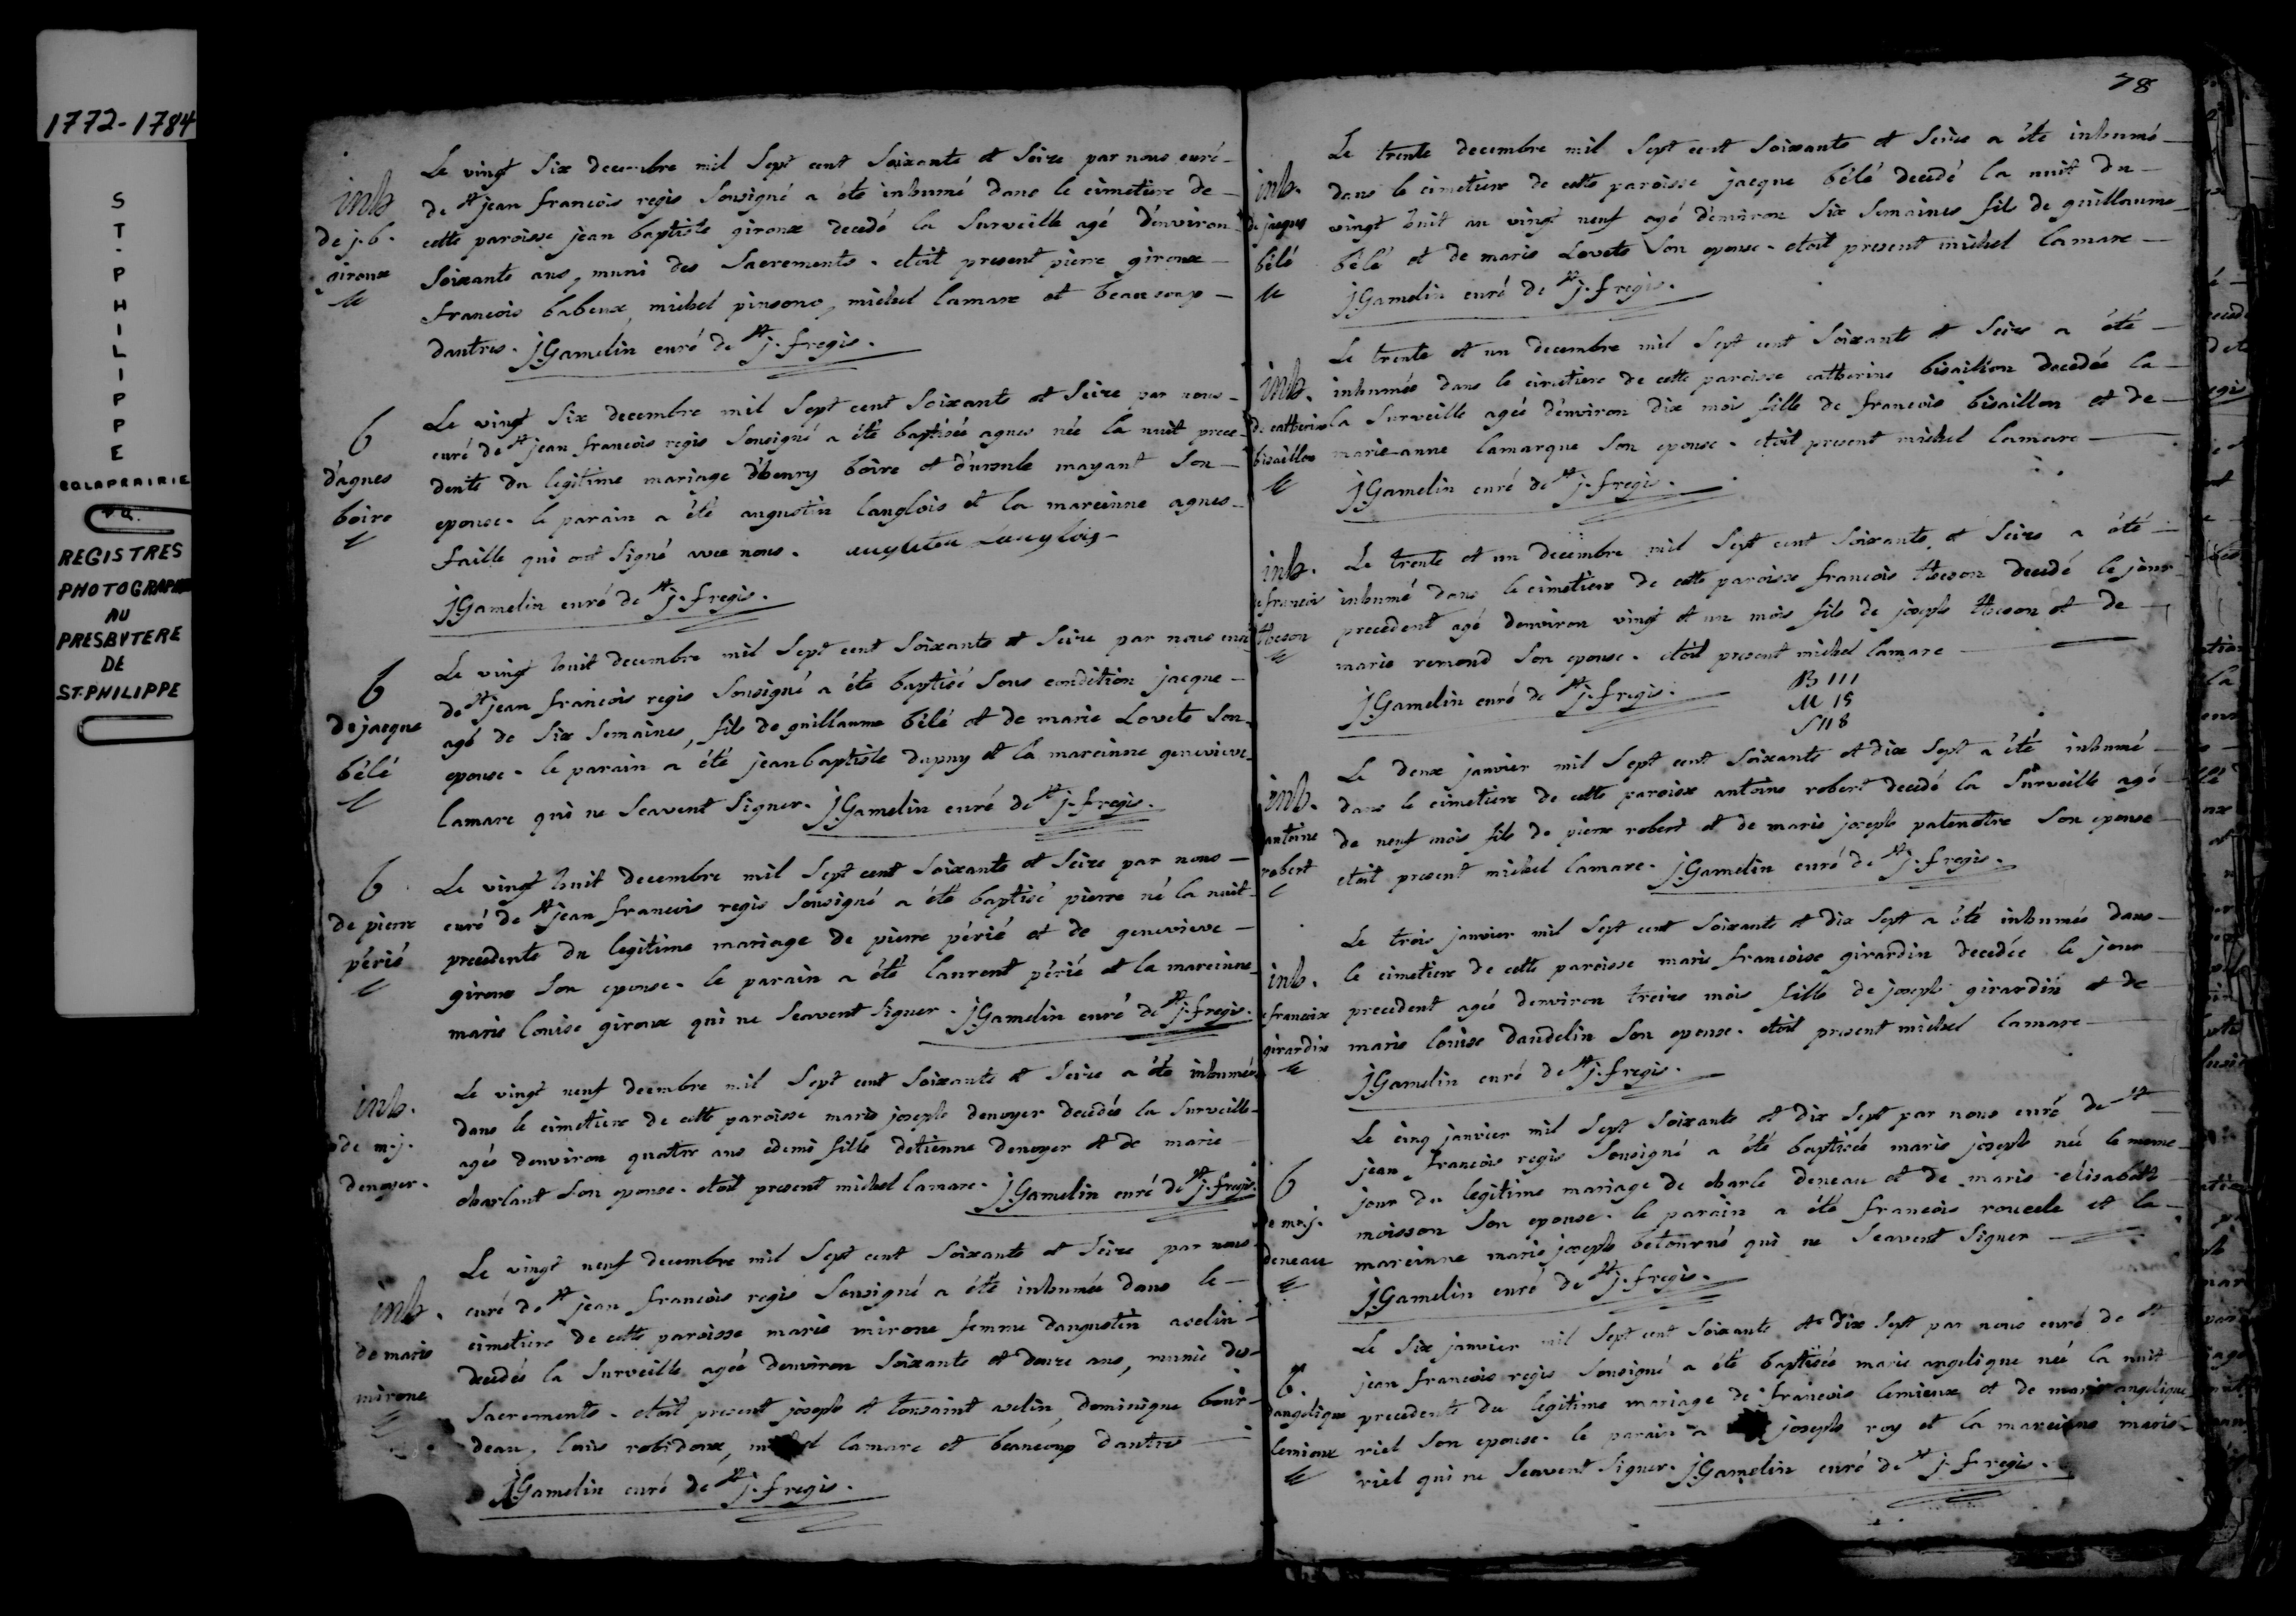 1772-1784
ST. PHILIPPE
REGISTRES
PHOTOGRAPHIÉS
AU
PRESBYTERE
DE
ST-PHILIPPE
inh
de j. b.
giroux
Le vingt Six decembre mil Sept cent Soixante et Seize par nous curé
de St jean francois regis Sousigné a été inhumé dans le cimetiere de
cette paroisse jean baptiste giroux decedé la Surveille agé d'environ
Soixante ans, muni des Sacrements. etoit present pierre giroux
francois babeux, michel pinsono, michel lamare et beaucoup
dautres. jGamelin curé de St j. f regis.
b
d'agnes
boire
Le vingt Six decembre mil Sept cent Soixante et Seize par nous
curé de St jean francois regis Sousigné a été baptisée agnes née la nuit prece
dente du legitime mariage d'henry boire et d'ursule mayant Son
epouse. le parain a été augustin langlois et la mareinne agnes
faille qui ont Signé avec nous. augustin Langlois
jGamelin curé de St j. f regis.
b
de jacque
bélé
Le vingt huit decembre mil Sept cent Soixante et Seize par nous curé
de St jean francois regis Sousigné a été baptisé Sous condition jacque
agé de Six Semaines, fils de guillaume bélé et de marie Lovete Son
epouse. le parain a été jean baptiste dupuy et la mareinne genevieve
lamare qui ne Scavent Signer. jGamelin curé de St j. f regis.
b
de pierre
périé
Le vingt huit decembre mil Sept cent Soixante et Seize par nous
curé de St jean francois regis Sousigné a été baptisé pierre né la nuit
precedente du legitime mariage de pierre périé et de genevieve
giroux Son epouse. le parain a été laurent périé et la mareinne
marie louise giroux qui ne Scavent Signer. jGamelin curé de St j. f regis.
inh.
de m. j.
denoyer.
Le vingt neuf decembre mil Sept cent Soixante et Seize a été inhumée
dans le cimetiere de cette paroisse marie joseph denoyer decedée la Surveille
agée denviron quatre ans edemi fille detienne denoyer et de marie
charlant Son epouse. etoit present michel lamare. jGamelin curé de St j. f regis.
inh.
de marie
mirone
Le vingt neuf decembre mil Sept cent Soixante et Seize par nous
curé de St jean francois regis Sousigné a été inhumée dans le
cimetiere de cette paroisse marie mirone femme daugustin aselin
decedée la Surveille agée denviron Soixante et douze ans, munie des
Sacrements. etoit present joseph et tousaint aselin, dominique bour
deau, louis robidoux, michel lamare et beaucoup dautres
jGamelin curé de St j. f regis.
78
inh.
de jacques
bélé
Le trente decembre mil Sept cent Soixante et Seize a été inhumé
dans le cimetiere de cette paroisse jacque bélé decedé la nuit du
vingt huit au vingt neuf agé denviron Six Semaines fils de guillaume
bélé et de marie Lovete Son epouse. etoit present michel lamare
jGamelin curé de St j. f regis.
inh.
de catherine
bisaillon
Le trente et un decembre mil Sept cent Soixante et Seize a été
inhumée dans le cimetiere de cette paroisse catherine bisaillon decedée la
la Surveille agée d'environ dix mois fille de francois bisaillon et de
marie anne lamarque Son epouse. etoit present michel lamare
jGamelin curé de St j. f regis.
inh.
de francois
theson
Le trente et un decembre mil Sept cent Soixante et Seize a été
inhumé dans le cimetiere de cette paroisse francois theson decedé le jour
precedent agé denviron vingt et un mois fils de joseph theson et de
marie remond Son epouse. etoit present michel lamare
jGamelin curé de St j. f regis.
B 111
M 15
S 118
inh.
antoine
robert
Le deux janvier mil Sept cent Soixante et dix Sept a été inhumé
dans le cimetiere de cette paroisse antoine robert decedé la Surveille agé
de neuf mois fils de pierre robert et de marie joseph patenotre Son epouse
etoit present michel lamare. jGamelin curé de St j. f regis.
inh.
francoise
girardin
Le trois janvier mil Sept cent Soixante et dix Sept a été inhumée dans
le cimetiere de cette paroisse marie francoise girardin decedée le jour
precedent agée denviron treize mois fille de joseph girardin et de
marie louise dandelin Son epouse. etoit present michel lamare
jGamelin curé de St j. f regis.
b
de m. j.
deneau
Le cinq janvier mil Sept Soixante et dix Sept par nous curé de St
jean francois regis Sousigné a été baptisée marie joseph née le meme
jour du legitime mariage de charle deneau et de marie elisabeth
moisson Son epouse. le parain a été francois roucele et la
mareinne marie joseph betourné qui ne Scavent Signer
jGamelin curé de St j. f regis.
b.
dangelique
lemieux
Le Six janvier mil Sept cent Soixante et dix Sept par nous curé de St
jean francois regis Sousigné a été baptisée marie angelique née la nuit
precedente du legitime mariage de francois lemieux et de marie angelique
riel Son epouse. le parain a joseph roy et la mareinne marie
riel qui ne Scavent Signer. jGamelin curé de St j. f regis.